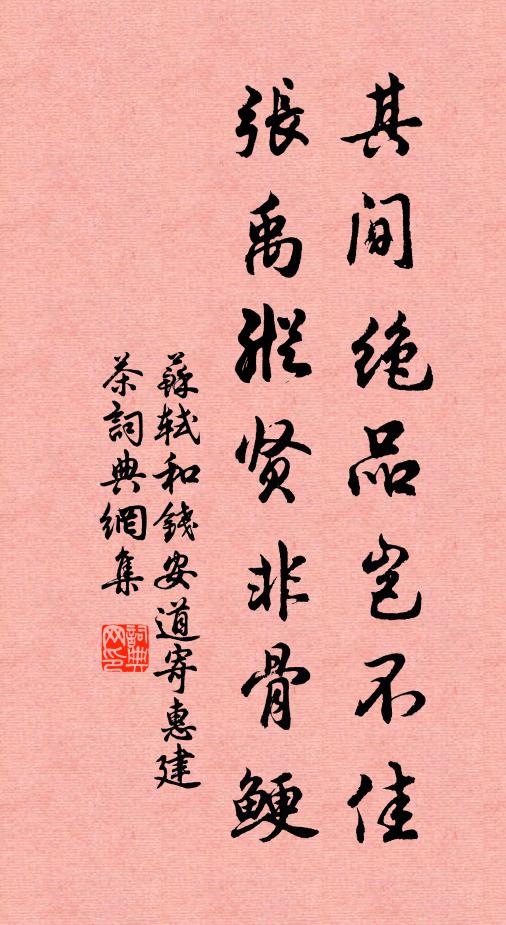 其间绝品岂不佳
張禹縱贤非骨鲠
蘇轼和錢安道寄惠建
茶詞典網集
詞典網印